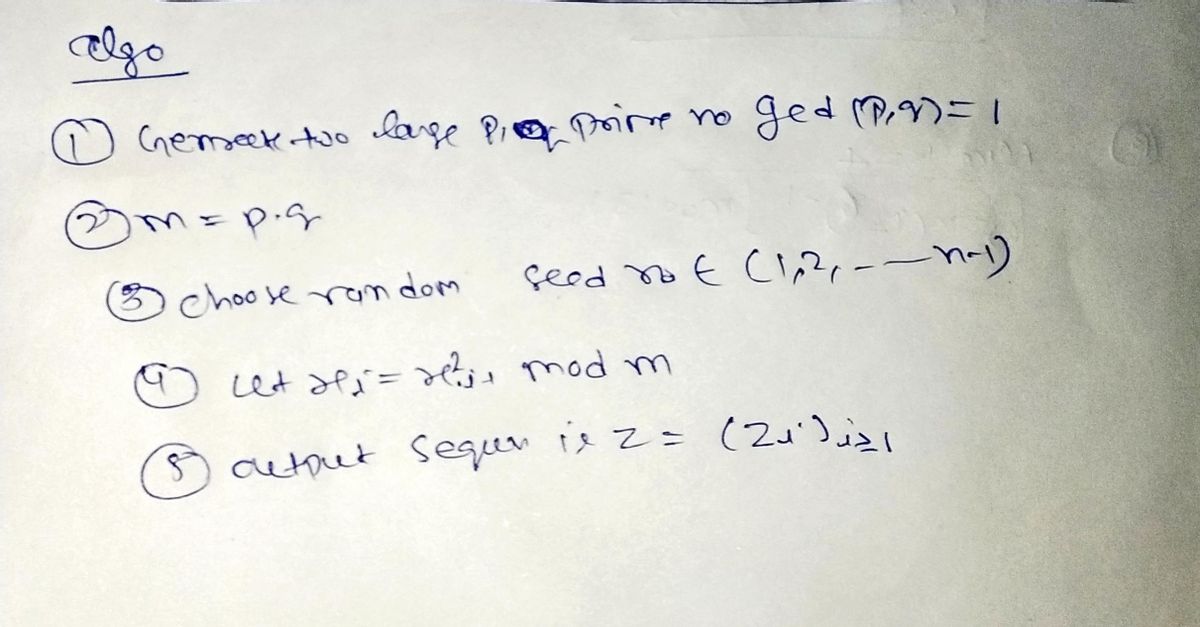 algo
① Generate two large p, q prime no gcd (p,q) = 1
② m = p.q
③ choose random seed no ∈ (1,2, - - n-1)
④ let xi = x²i-1 mod m
⑤ output sequen is z = (zi)i≥1